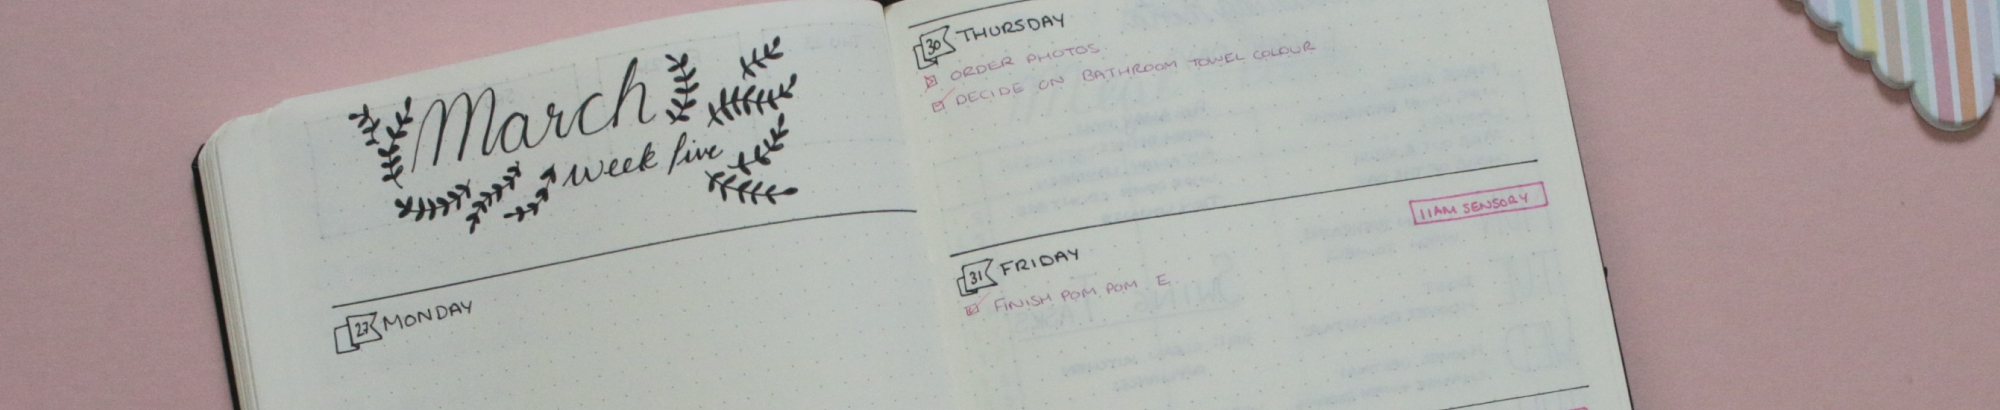 March
week five
27 MONDAY
30 THURSDAY
ORDER PHOTOS
DECIDE ON BATHROOM TOWEL COLOUR
11AM SENSORY
31 FRIDAY
FINISH POM POM E